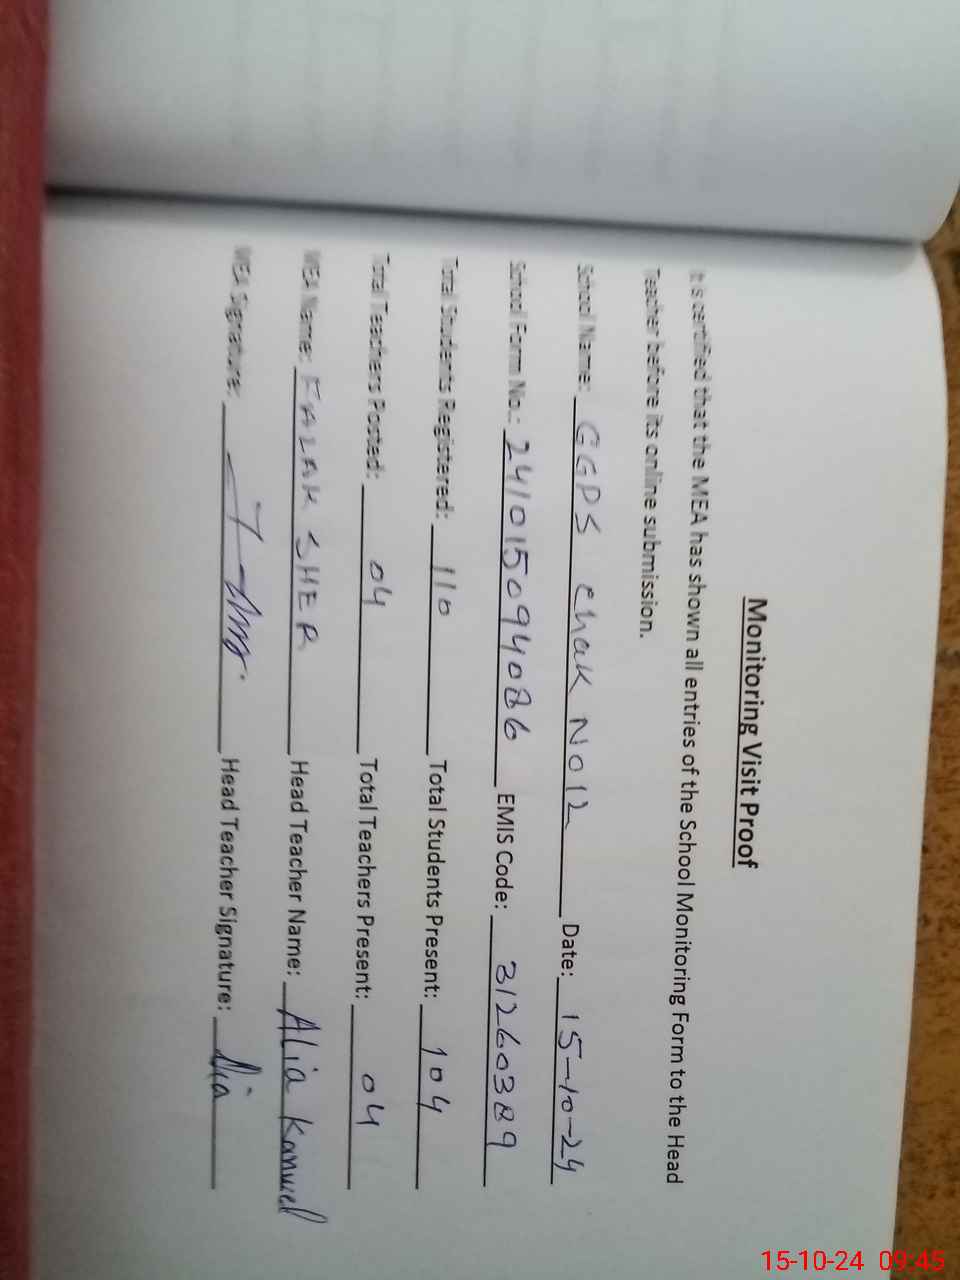 Monitoring Visit Proof
It is certified that the MEA has shown all entries of the School Monitoring Form to the Head
Teacher before its online submission.
School Name: GGPS Chak No 12 Date: 15-10-24
School Form No.: 241015094086 EMIS Code: 31260389
Total Students Registered: 110 Total Students Present: 104
Total Teachers Posted: 04 Total Teachers Present: 04
MEA Name: FALAK SHER Head Teacher Name: Alia Kanwel
MEA Signature: Head Teacher Signature: Alia
15-10-24 09:45